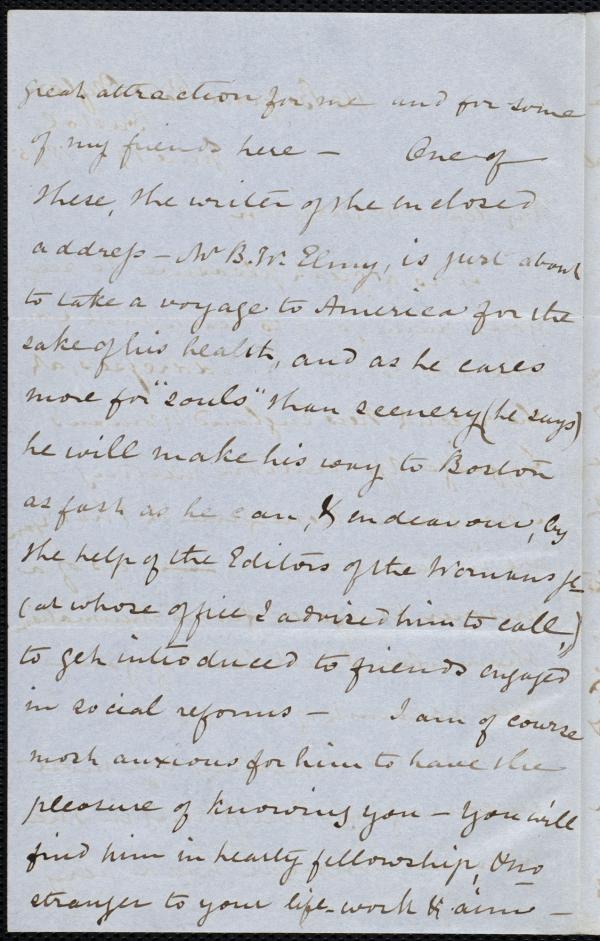 great attraction for me and for some
of my friends here — One of
these, the writer of the enclosed
address — Mr B. W. Elmy, is just about
to take a voyage to America for the
sake of his health, and as he cares
more for "souls" than scenery (he says)
he will make his way to Boston
as fast as he can, & endeavour, by
the help of the Editors of the Womans Jl
(at whose office I advised him to call,)
to get introduced to friends engaged
in social reforms — I am of course
most anxious for him to have the
pleasure of knowing you — You will
find him in hearty fellowship, & no
stranger to your life-work & aims —